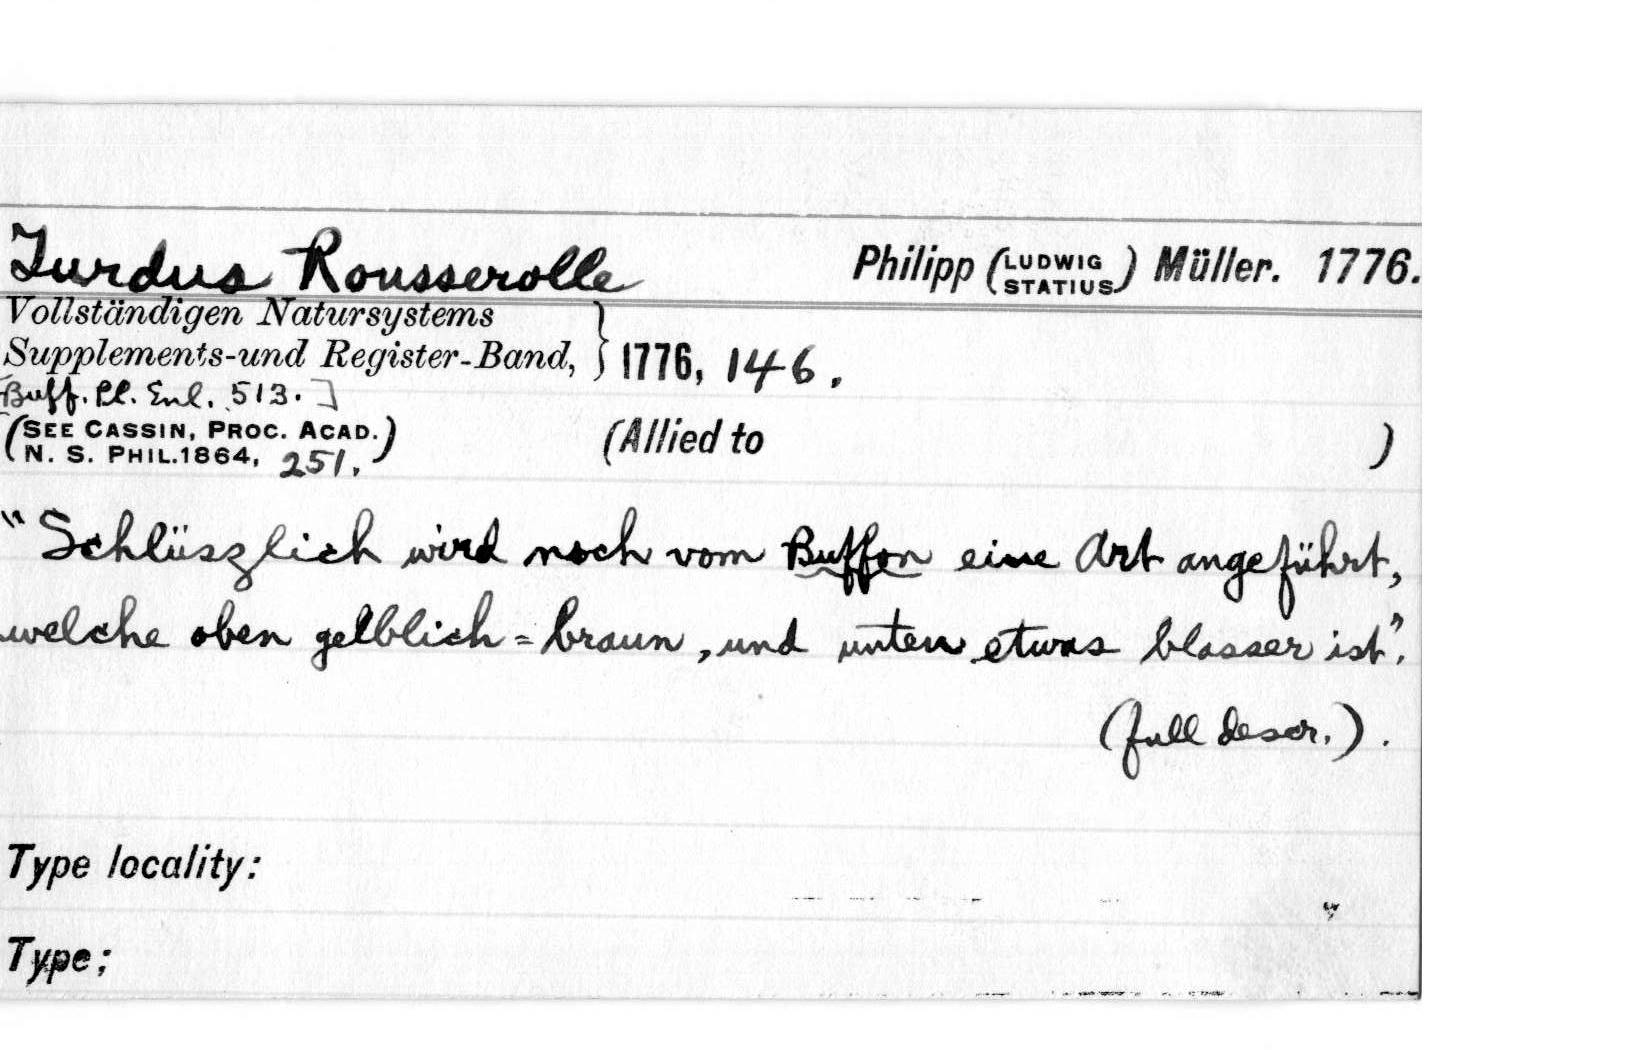 Turdus Rousserolle Philipp (LUDWIG STATIUS) Müller. 1776.
Vollständigen Natursystems
Supplements-und Register-Band, } 1776, 146.
[Buff. Pl. Enl. 513.]
(SEE CASSIN, PROC. ACAD.
N. S. PHIL. 1864, 251.) (Allied to )
"Schlüszlich wird noch vom Buffon eine Art angeführt,
welche oben gelblich=braun, und unten etwas blasser ist".
(full descr.).
Type locality:
Type: